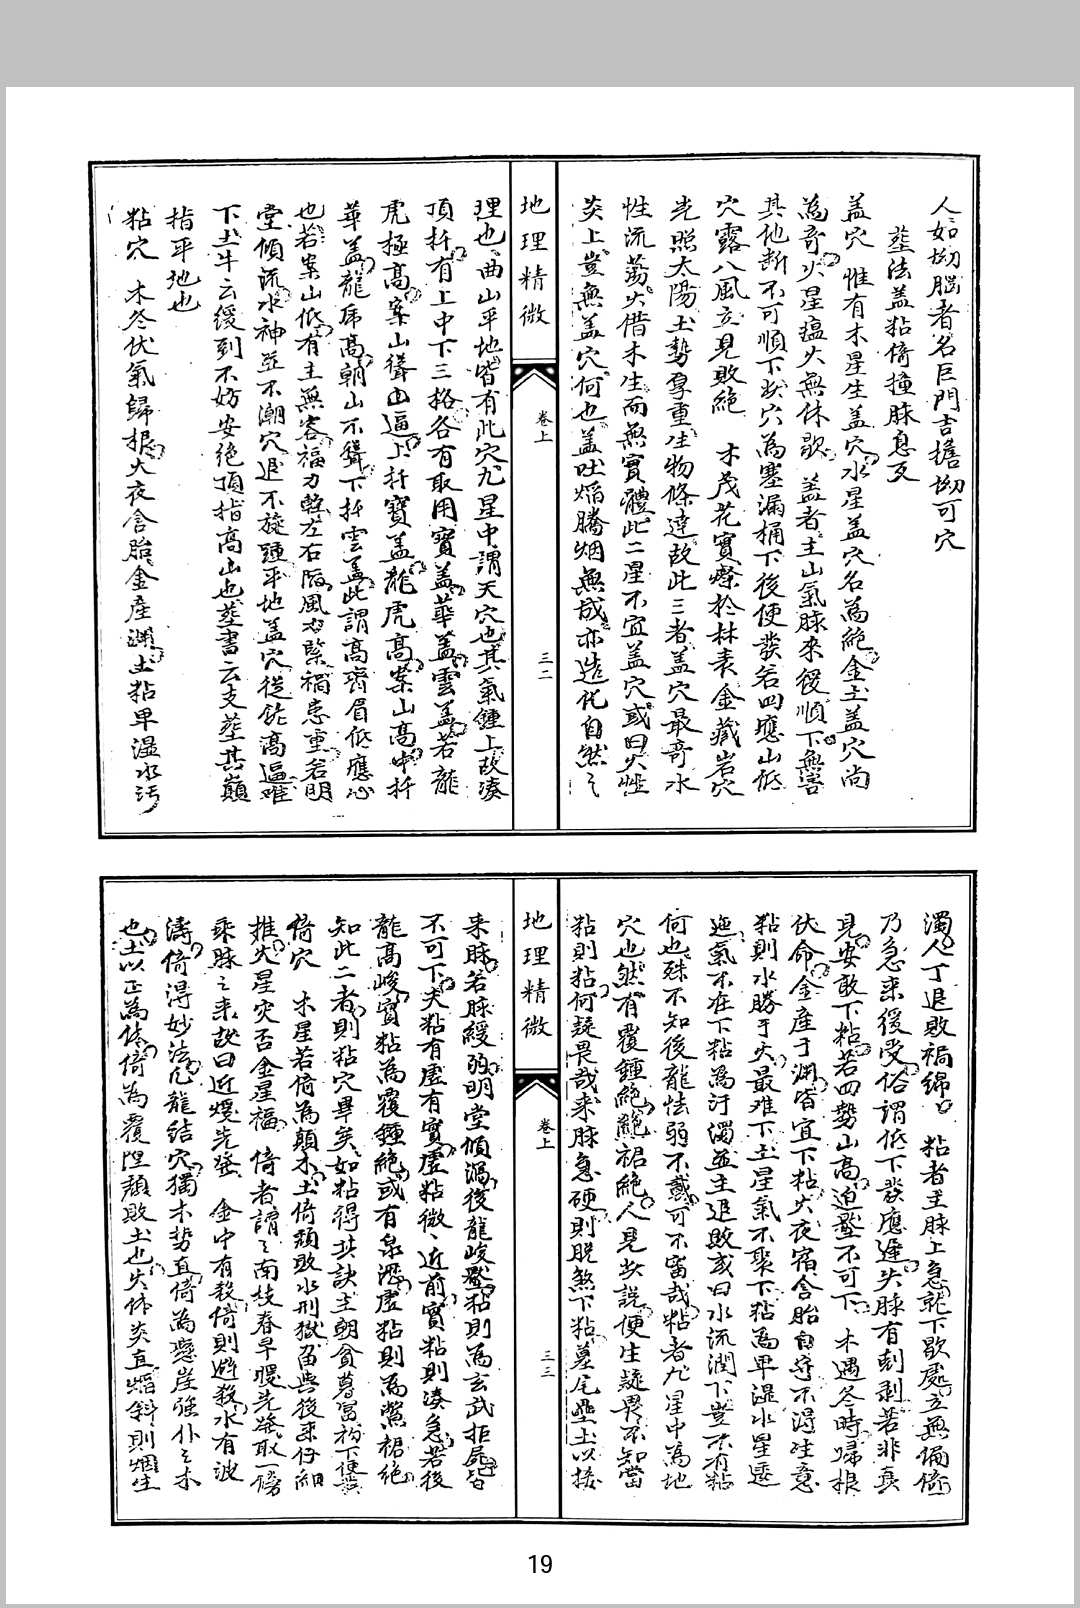 人言如坳脳者名巨門吉擔坳可穴
葬法盖粘倚撞脉息反
盖穴　惟有木星生盖穴水星盖穴名為絕金土盖穴尚
為奇火星瘟火無休歇　盖者主山氣脉來緩順下無害
其他断不可順下此穴為塞漏桶下後便發若四應山低
穴露八風立見敗絕　木茂花實燦於林表金藏岩穴
光照太陽土勢厚重生物條達故此三者盖穴最奇水
性流荡火借木生而無實體此二星不宜盖穴或曰火性
炎上豈無盖穴何也盖吐焰騰烟無成亦造化自然之
地理精微
卷上
三二
理也曲山平地皆有此穴九星中謂天穴也其氣鍾上故湊
頂扦有上中下三格各有取用寶盖華盖雲盖若龍
虎極高案山聳逼上扦寶盖龍虎高案山高中扦
華盖龍虎高朝山不聳下扦雲盖此謂高齊眉低應心
也若案山低有主無客福力輕左右風吹緊禍患重若明
堂傾流水神並不潮穴退不旋踵平地盖穴從饒高逼難
下土牛云緩到不妨安絕頂指高山也葬書云支葬其巔
指平地也
粘穴　木冬伏氣歸根火夜含胎金產淵土粘卑湿水污
濁人丁退敗禍綿々　粘者主脉上急就下歇處立無偏倚
乃急来緩受俗謂低下發應遲失脉有剋剥若非真
見安敢下粘若四勢山高迫壓不可下　木遇冬時歸根
伏命金産于淵皆宜下粘火夜宿含胎自守不得生意
粘則水勝于火最难下土星氣不聚下粘為卑濕水星懸
氣不在下粘為汙濁並主退敗或曰水流潤下豈不有粘
何也殊不知後龍怯弱不戴可不審哉粘者九星中為地
穴也然有覆鍾絕絕裙絕人見此説便生疑畏不知當
粘則粘何疑畏哉来脉急硬則脱煞下粘墓尾壘土以接
地理精微
卷上
三三
来脉若脉緩弱明堂傾瀉後龍峻登粘則為玄武拒屍皆
不可下夫粘有虚有實虚粘微々近前實粘則湊急若後
龍高峻實粘為覆鍾絕或有泉濕虚粘則為鱉裙絕
知此二者則粘穴畢矣如粘得其訣主朝貧暮富初下便興
倚穴　木星若倚為顛木土倚頹敗水刑獄留與後来仔細
推火星灾否金星福　倚者謂之南枝春早暖先發取一傍
乘脉之来故曰近煖先發　金中有殺倚則避殺水有波
濤倚得妙法凡龍結穴獨木勢直倚為懸崖強仆之木
也土以正為体倚為覆陧頹敗土也火体炎直焰斜則烟生
19